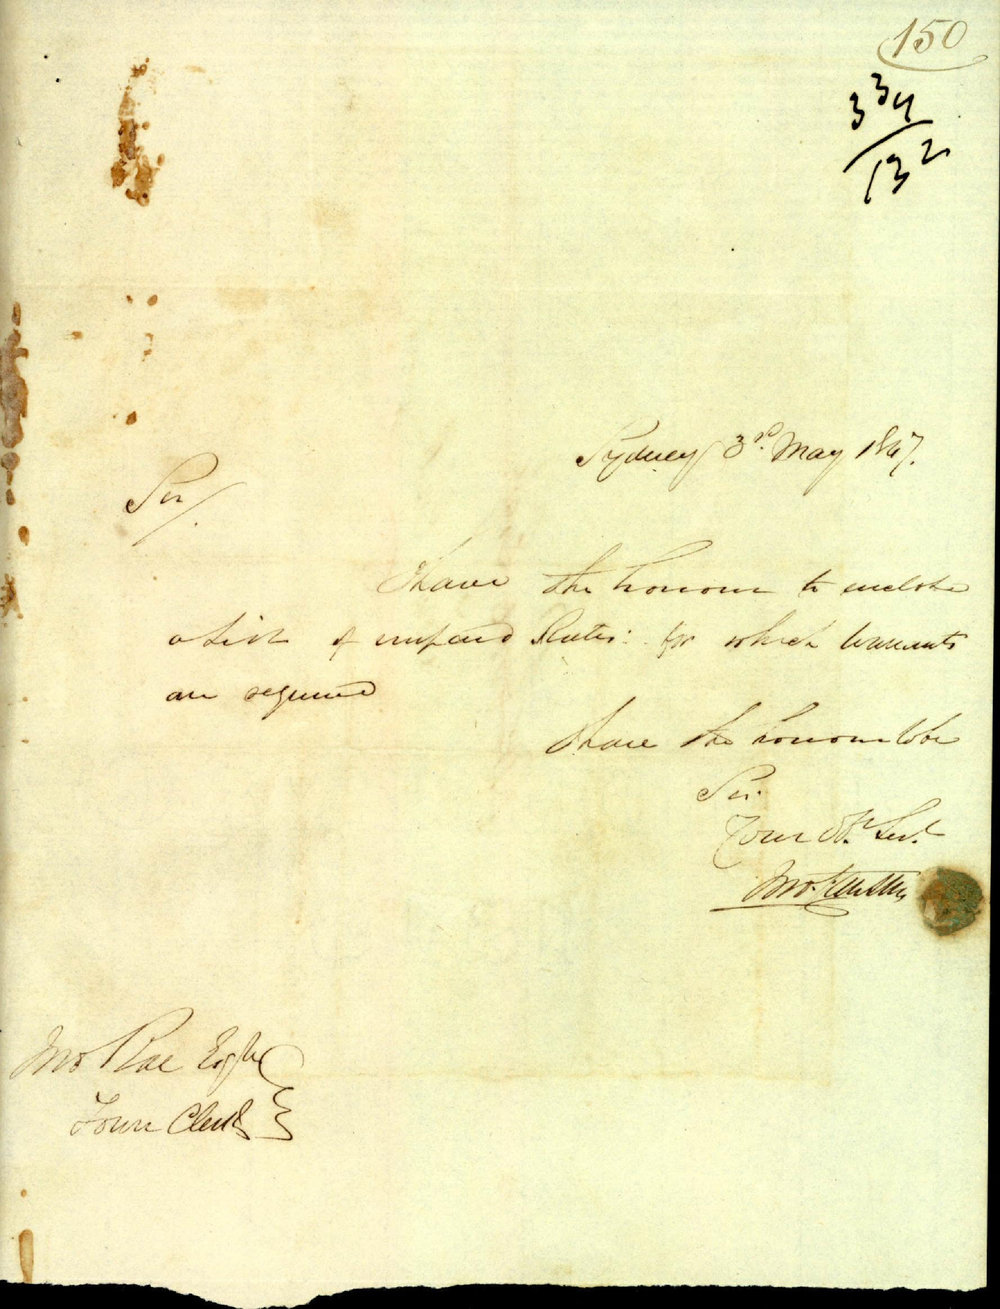 150
334
132
Sydney 3rd. May 1847.
Sir/.
I have the honour to enclose
a List of unpaid Rates: for which Warrants
are required
I have the honour to be
Sir.
Your Obt. Servt.
Jno.
Jno Rae Esqre
Town Clerk